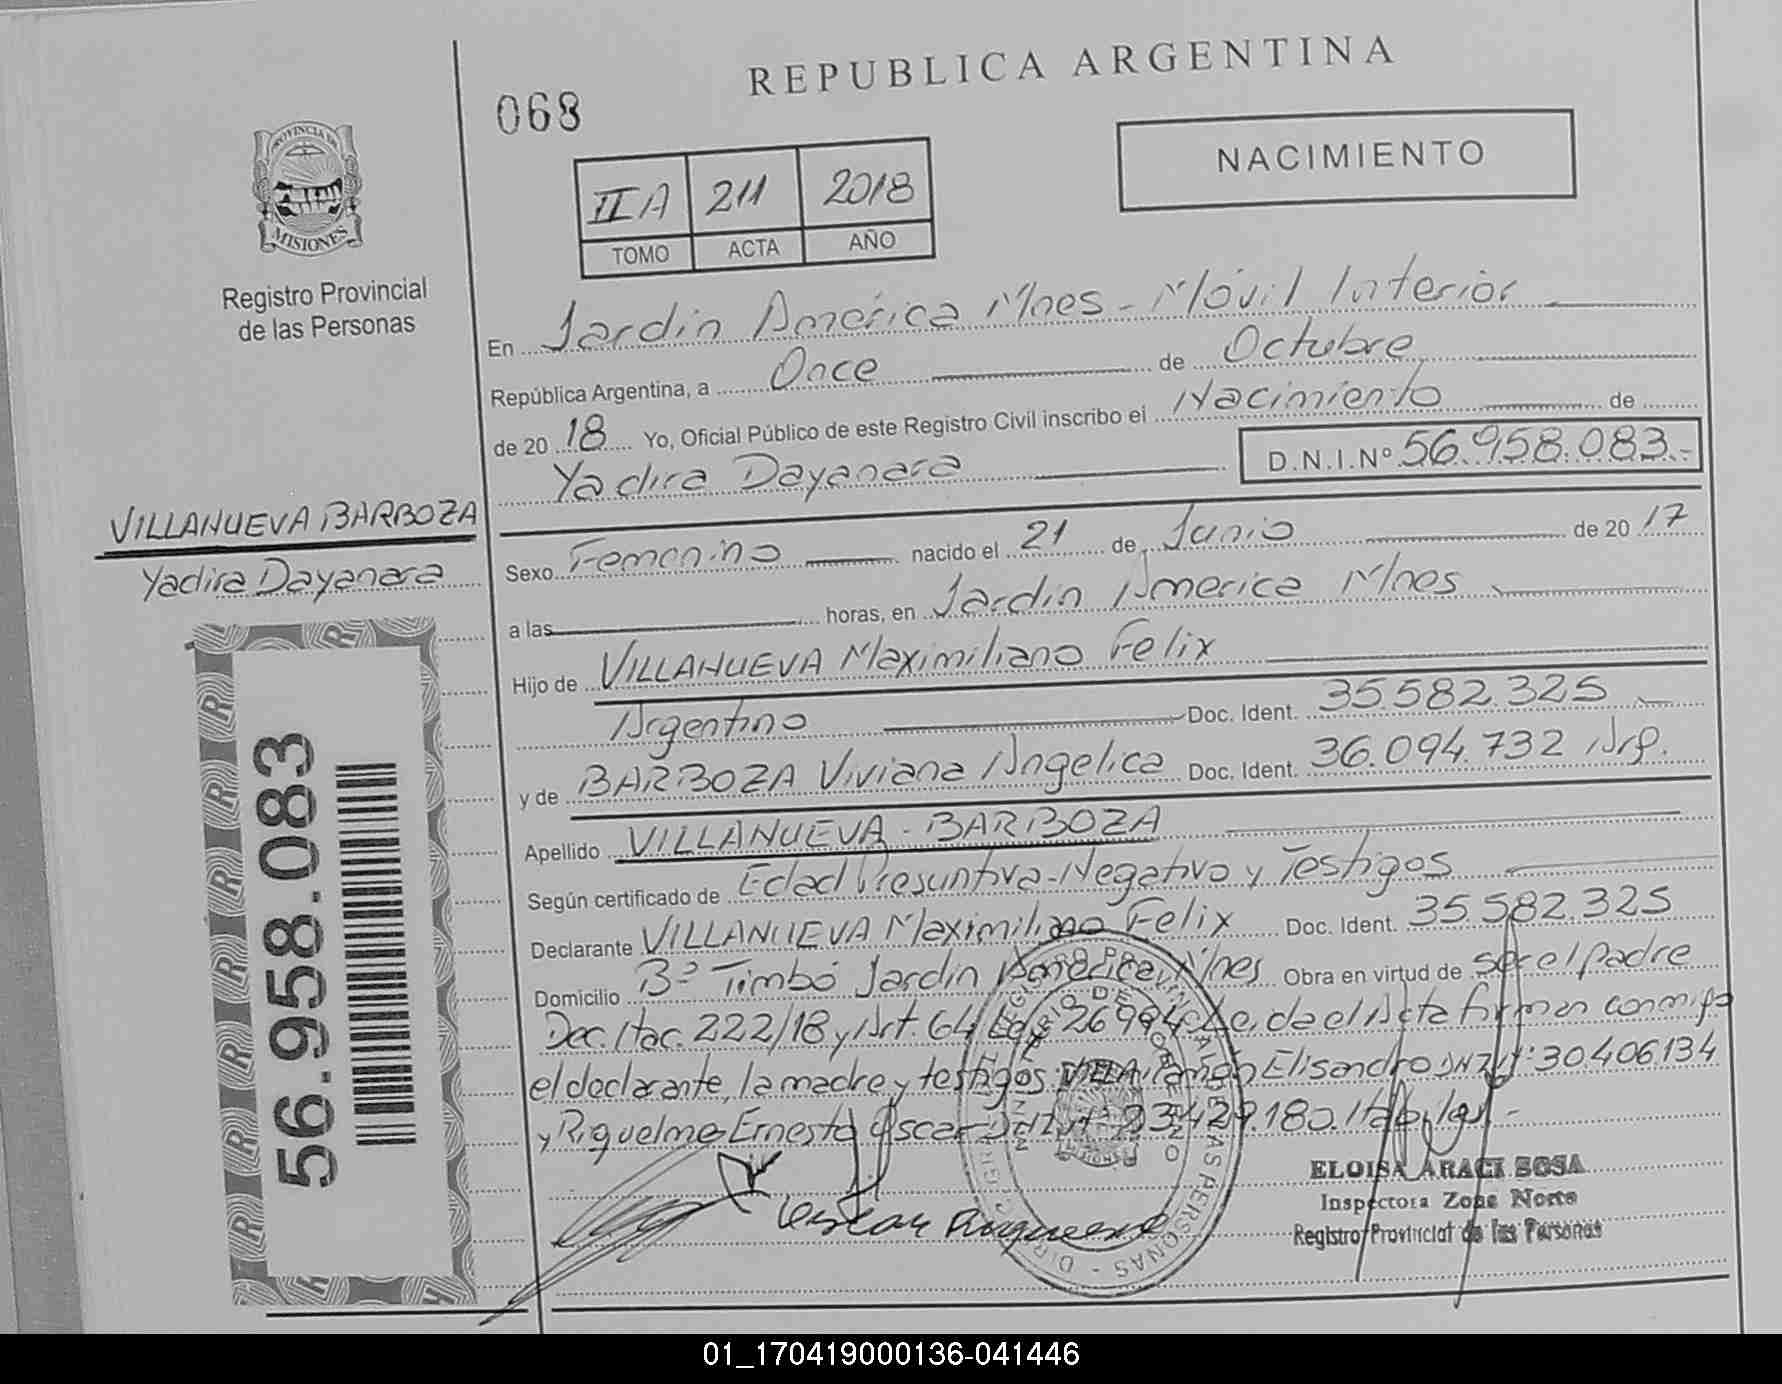 REPUBLICA ARGENTINA
068
NACIMIENTO
II A 211 2018
TOMO ACTA AÑO
PROVINCIA DE
MISIONES
Registro Provincial
de las Personas
En Jardin América Mnes - Móvil Interior
República Argentina, a Once de Octubre
de 20 18 Yo, Oficial Público de este Registro Civil inscribo el Nacimiento de
Yadira Dayanara D.N.I.Nº 56.958.083.-
VILLANUEVA BARBOZA
Yadira Dayanara
Sexo Femenino nacido el 21 de Junio de 20 17
a las horas, en Jardin America Mnes
Hijo de VILLANUEVA Maximiliano Felix
Argentino Doc. Ident. 35.582.325
y de BARBOZA Viviana Angelica Doc. Ident. 36.094.732 Arg.
Apellido VILLANUEVA - BARBOZA
Según certificado de Edad Presuntiva - Negativo y Testigos
Declarante VILLANUEVA Maximiliano Felix Doc. Ident. 35.582.325
Domicilio Bº Timbó Jardin América Mnes Obra en virtud de ser el padre
Dec. Nac. 222/18 y Art. 64 Ley 26994 Leida el Acta firman conmigo
el declarante, la madre y testigos: Ramón Elisandro DNI Nº: 30.406.134
y Riquelme Ernesto Oscar DNI Nº 23.429.180.
56.958.083
ELOISA ARACI SOSA
Inspectora Zona Norte
Registro Provincial de las Personas
01_170419000136-041446